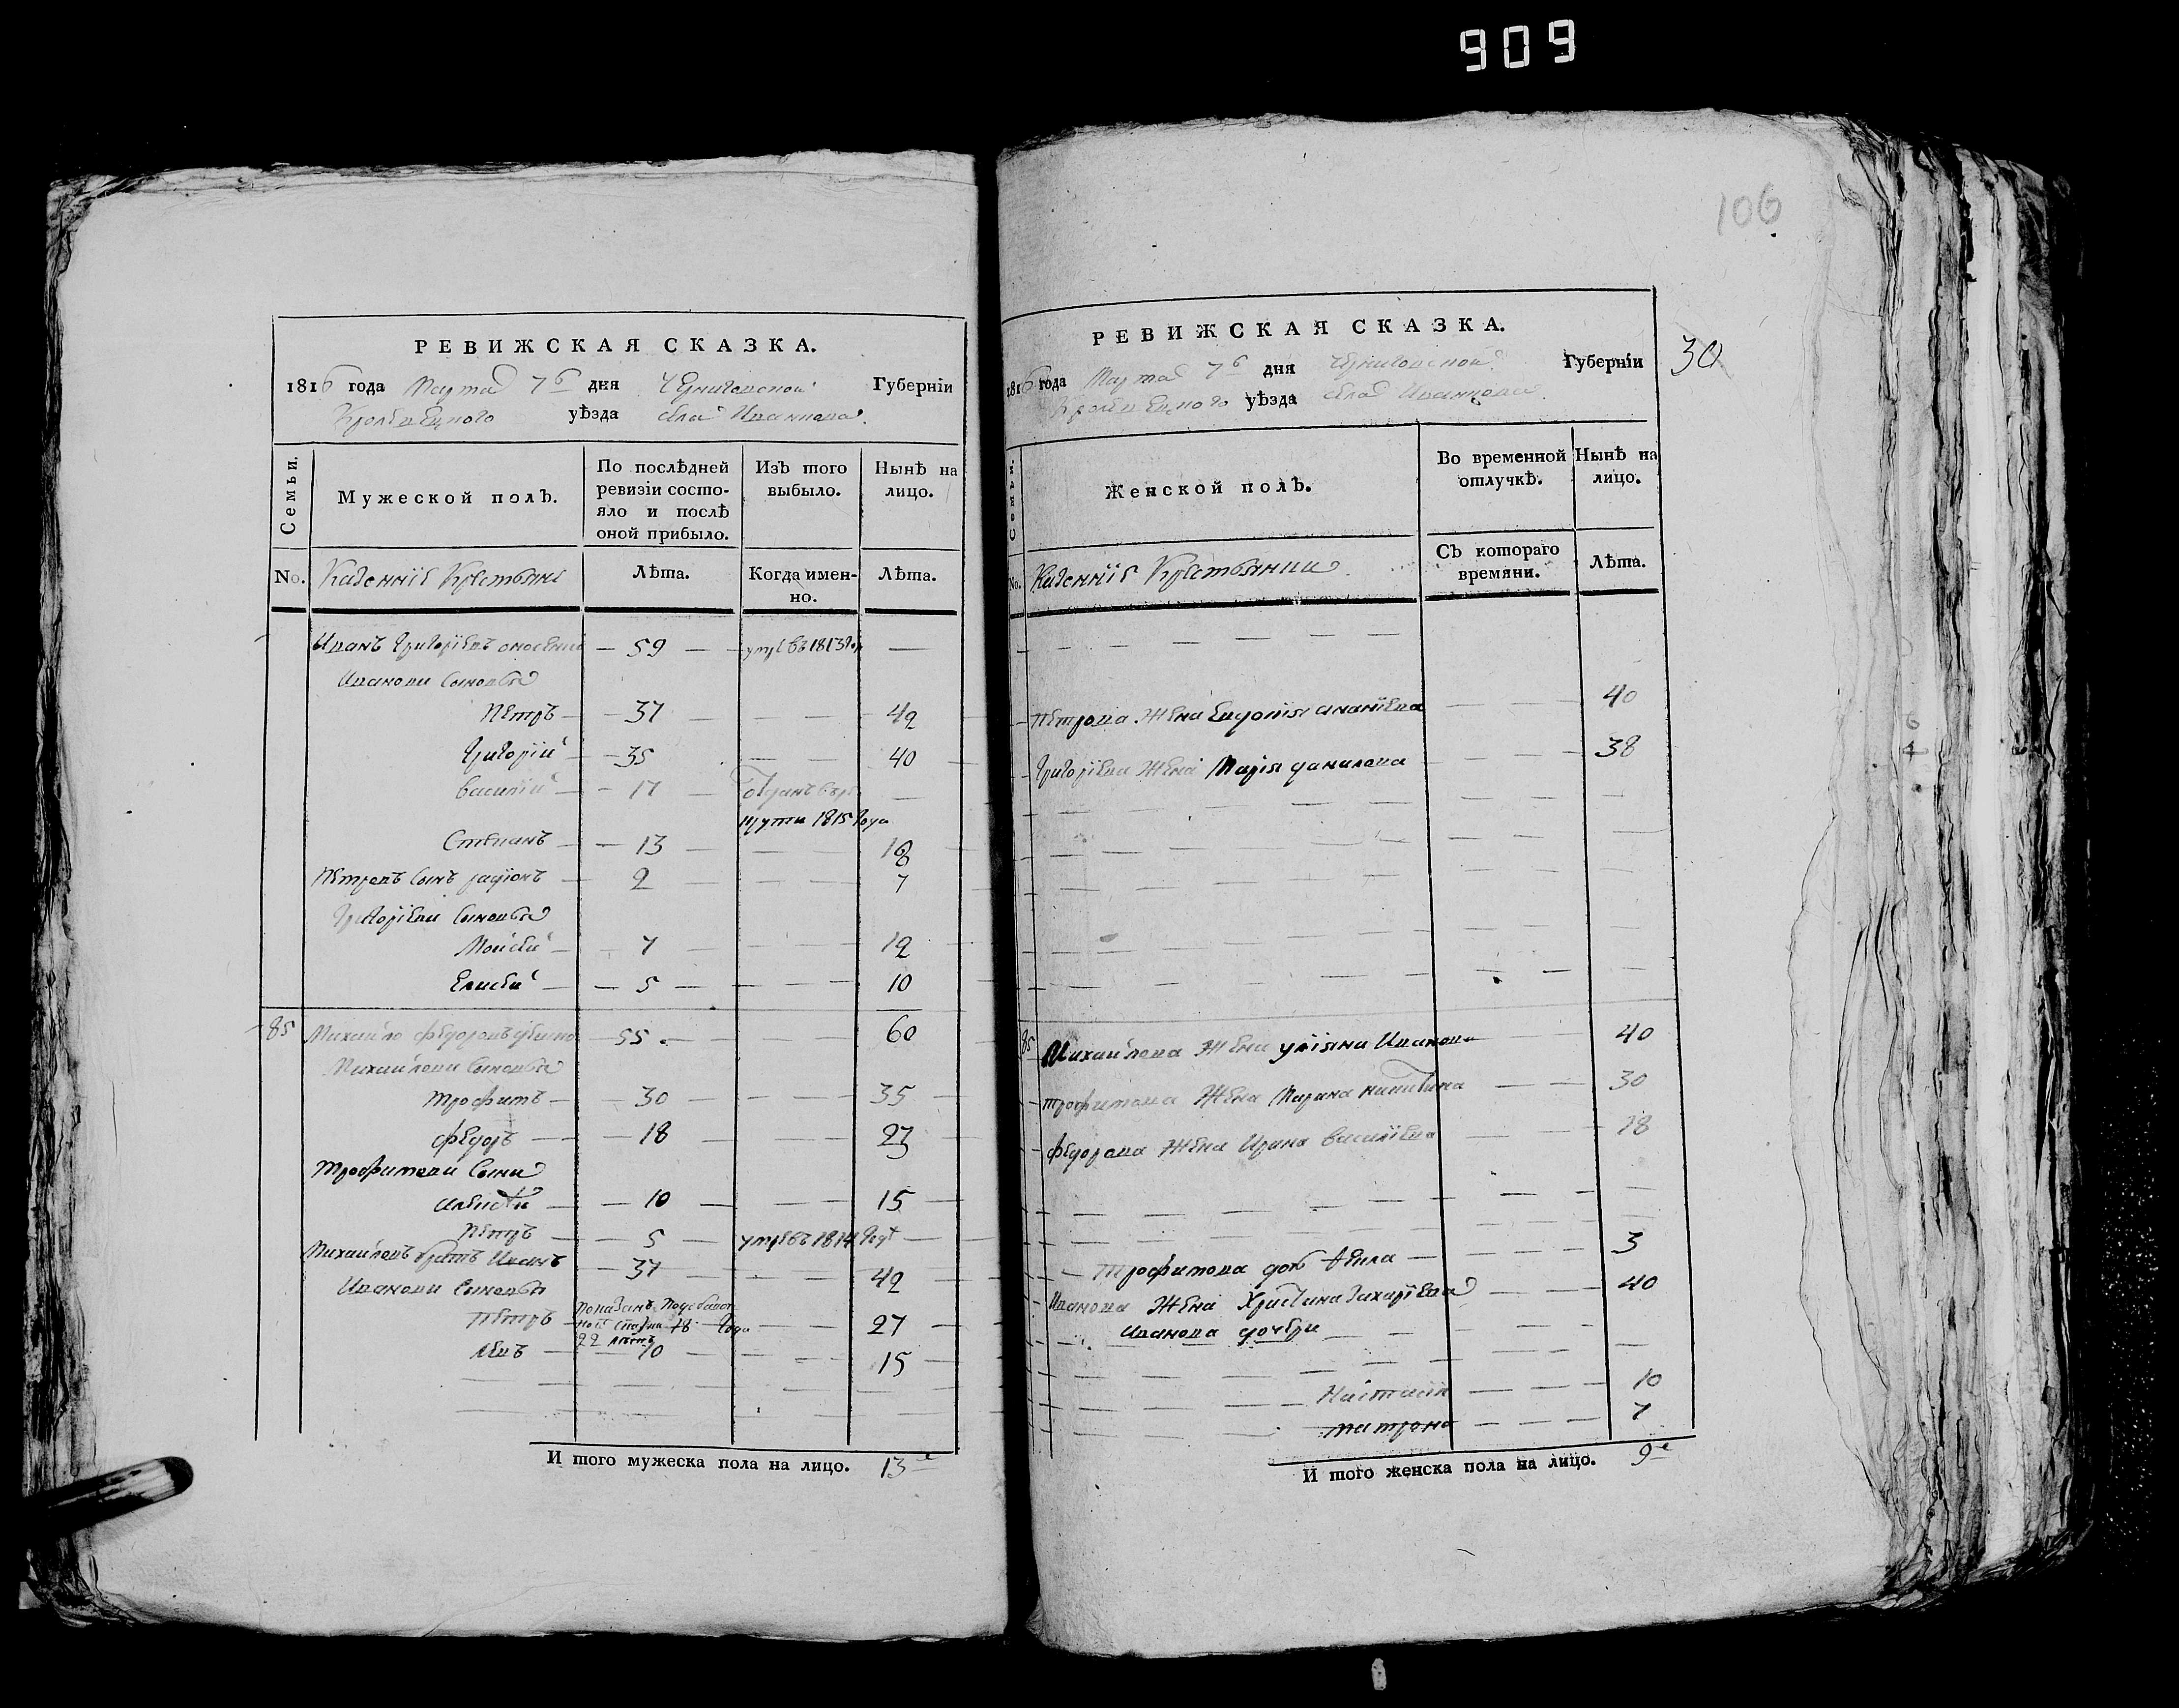 909
106
РЕВИЖСКАЯ СКАЗКА.
1816 года Марта 7го дня Черниговской Губерніи
Кролевецкого уѣзда села Иванкова.
Семьи.
Мужеской полъ.
По послѣдней ревизіи состояло и послѣ оной прибыло.
Изъ того выбыло.
Нынѣ на лицо.
No. Казенніе Крестьяне
Лѣта.
Когда именно.
Лѣта.
Иванъ Григоріевъ — 59 — умре въ 1813 год —
Иванови Сыновья
Петръ — 37 — — 42
Григорій — 35 — — 40
Василій — 17 — отданъ въ рекруты 1815 года —
Степанъ — 13 — — 18
Петровъ Сынъ Радіонъ — 2 — — 7
Григоріеви Сыновья
Мойсей — 7 — — 12
Елисей — 5 — — 10
85 Михайло Федоровъ — 55 — — 60
Михайлови Сыновья
Трофимъ — 30 — — 35
Федоръ — 18 — — 23
Трофимови Сыни
Алексѣй — 10 — — 15
Петръ — 5 — умре въ 1814 год —
Михайловъ братъ Иванъ — 37 — — 42
Иванови Сыновья
Петръ — 22 лѣтъ — — 27
Левъ — 10 — — 15
И того мужеска пола на лицо. 13
РЕВИЖСКАЯ СКАЗКА.
30
1816 года Марта 7го дня Черниговской Губерніи
Кролевецкого уѣзда села Иванкова.
Семьи.
Женской полъ.
Во временной отлучкѣ.
Нынѣ на лицо.
No. Казенніе Крестьянки
Съ котораго времяни.
Лѣта.
Петрова Жена Евдокія Ананіева — — 40
Григоріева Жена Марія Данилова — — 38
85 Михайлова Жена Уліяна Иванова — 40
Трофимова Жена Марина Никитина — — 30
Федорова Жена Ирина Василіева — — 18
Трофимова дочь Фекла — 3
Иванова Жена Христина Захаріева — — 40
Иванова дочери
Настасія — — 10
Матрона — — 7
И того женска пола на лицо. 9